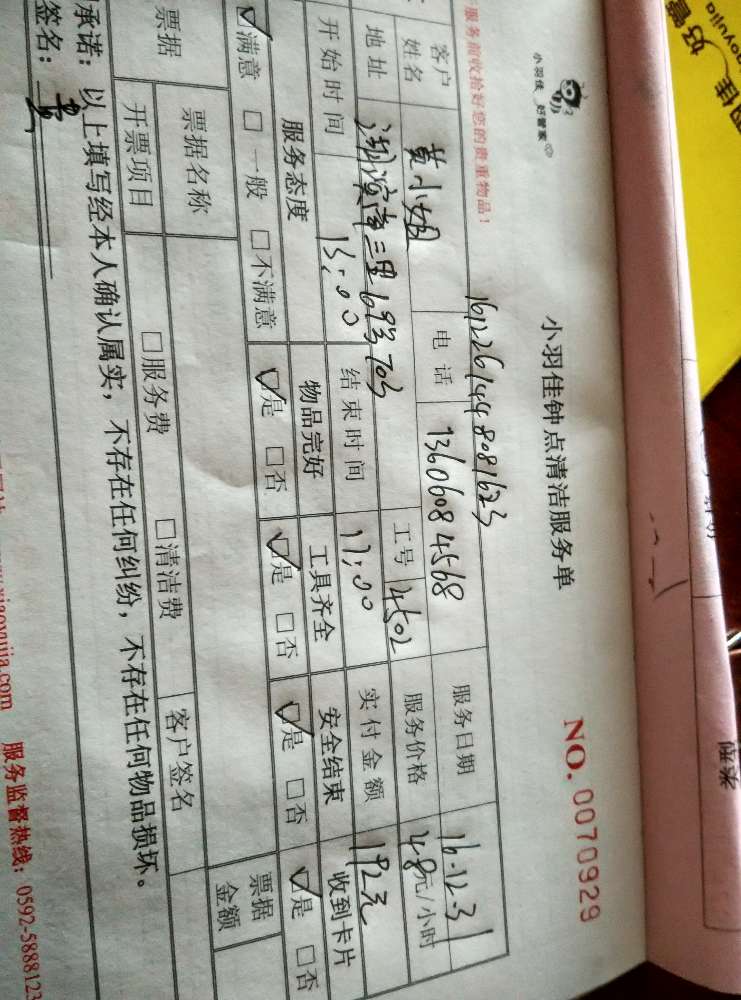 小羽佳 好管家
小羽佳钟点清洁服务单
NO. 0070929
服务前收拾好您的贵重物品!
1612261448081623
客户姓名 黄小姐 电话 13606084568 服务日期 16.12.31
地址 湖滨南三里69号703 工号 4502 服务价格 48元/小时
开始时间 13:00 结束时间 17:00 实付金额 192元
服务态度 物品完好 工具齐全 安全结束 收到卡片
☑满意 □一般 □不满意 ☑是 □否 ☑是 □否 ☑是 □否 ☑是 □否
票据 票据名称 □服务费 □清洁费 票据金额
开票项目 客户签名
承诺:以上填写经本人确认属实,不存在任何纠纷,不存在任何物品损坏。
签名:
xiaoyujia.com 服务监督热线:0592-5888123